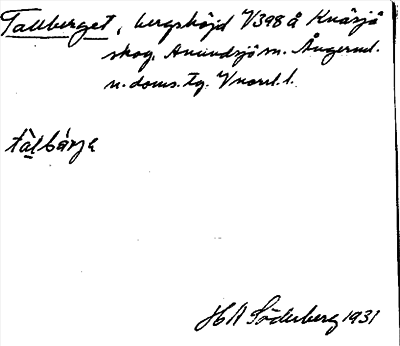 Tallberget, bergshöjd V398 å Knäsjö
skog. Anundsjö sn. Ångerml.
n. doms. tg. Vnorrl. l.
tàlbárje
H A Söderberg 1931